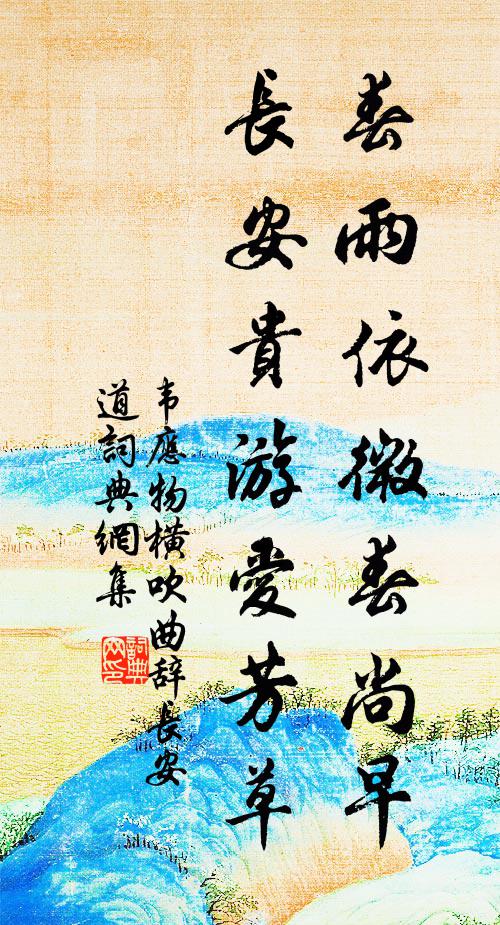 春雨依微春尚早
長安貴游愛芳草
韦應物橫吹曲辞長安
道詞典網集
詞典